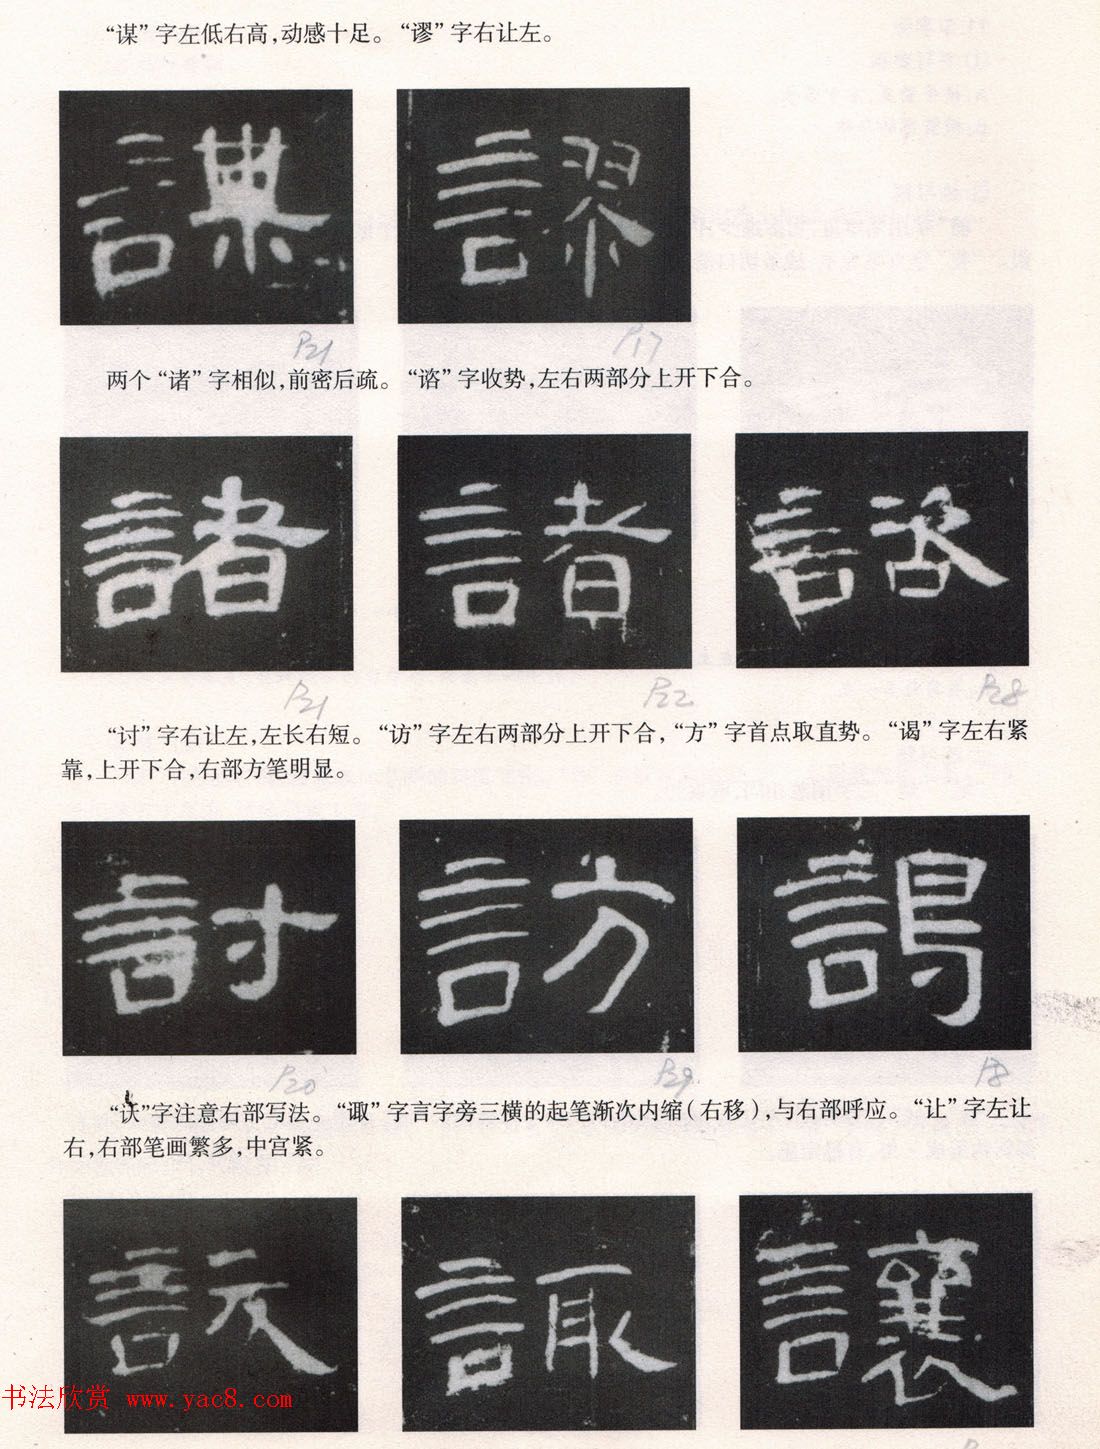 “谋”字左低右高，动感十足。“谬”字右让左。
謀 謬
P21 P17
两个“诸”字相似，前密后疏。“谘”字收势，左右两部分上开下合。
諸 諸 諮
P21 P22 P28
“讨”字右让左，左长右短。“访”字左右两部分上开下合，“方”字首点取直势。“谒”字左右紧
靠，上开下合，右部方笔明显。
討 訪 謁
P20 P29 P8
字注意右部写法。“诹”字言字旁三横的起笔渐次内缩（右移），与右部呼应。“让”字左让
右，右部笔画繁多，中宫紧。
諏 讓
书法欣赏 www.yac8.com